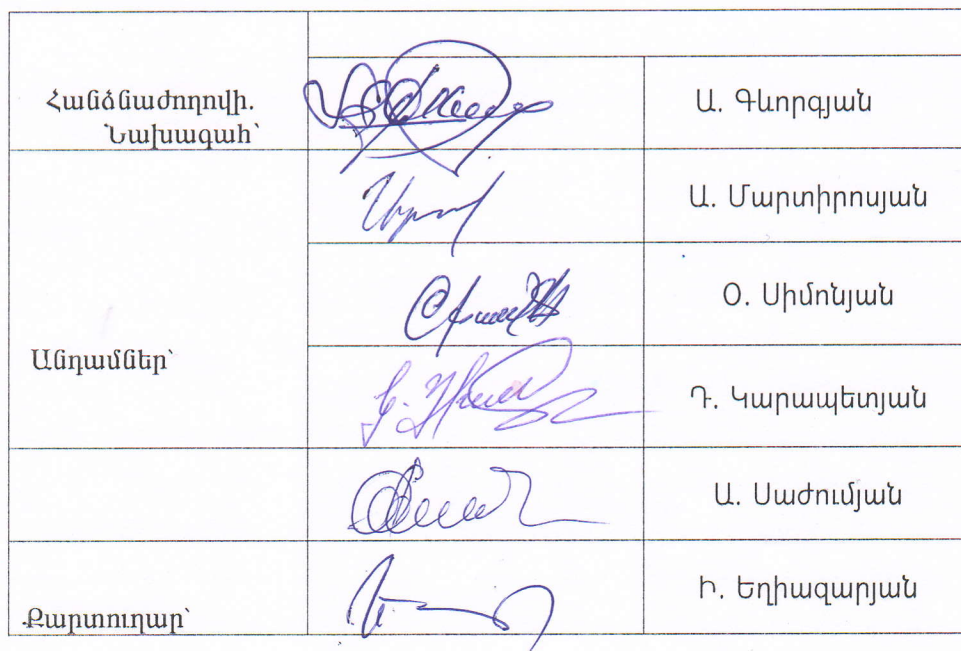 Հանձնաժողովի.
Նախագահ՝
Ա. Գևորգյան
Ա. Մարտիրոսյան
Օ. Սիմոնյան
Անդամներ՝
Դ. Կարապետյան
Ա. Սաժումյան
Քարտուղար՝
Ի. Եղիազարյան